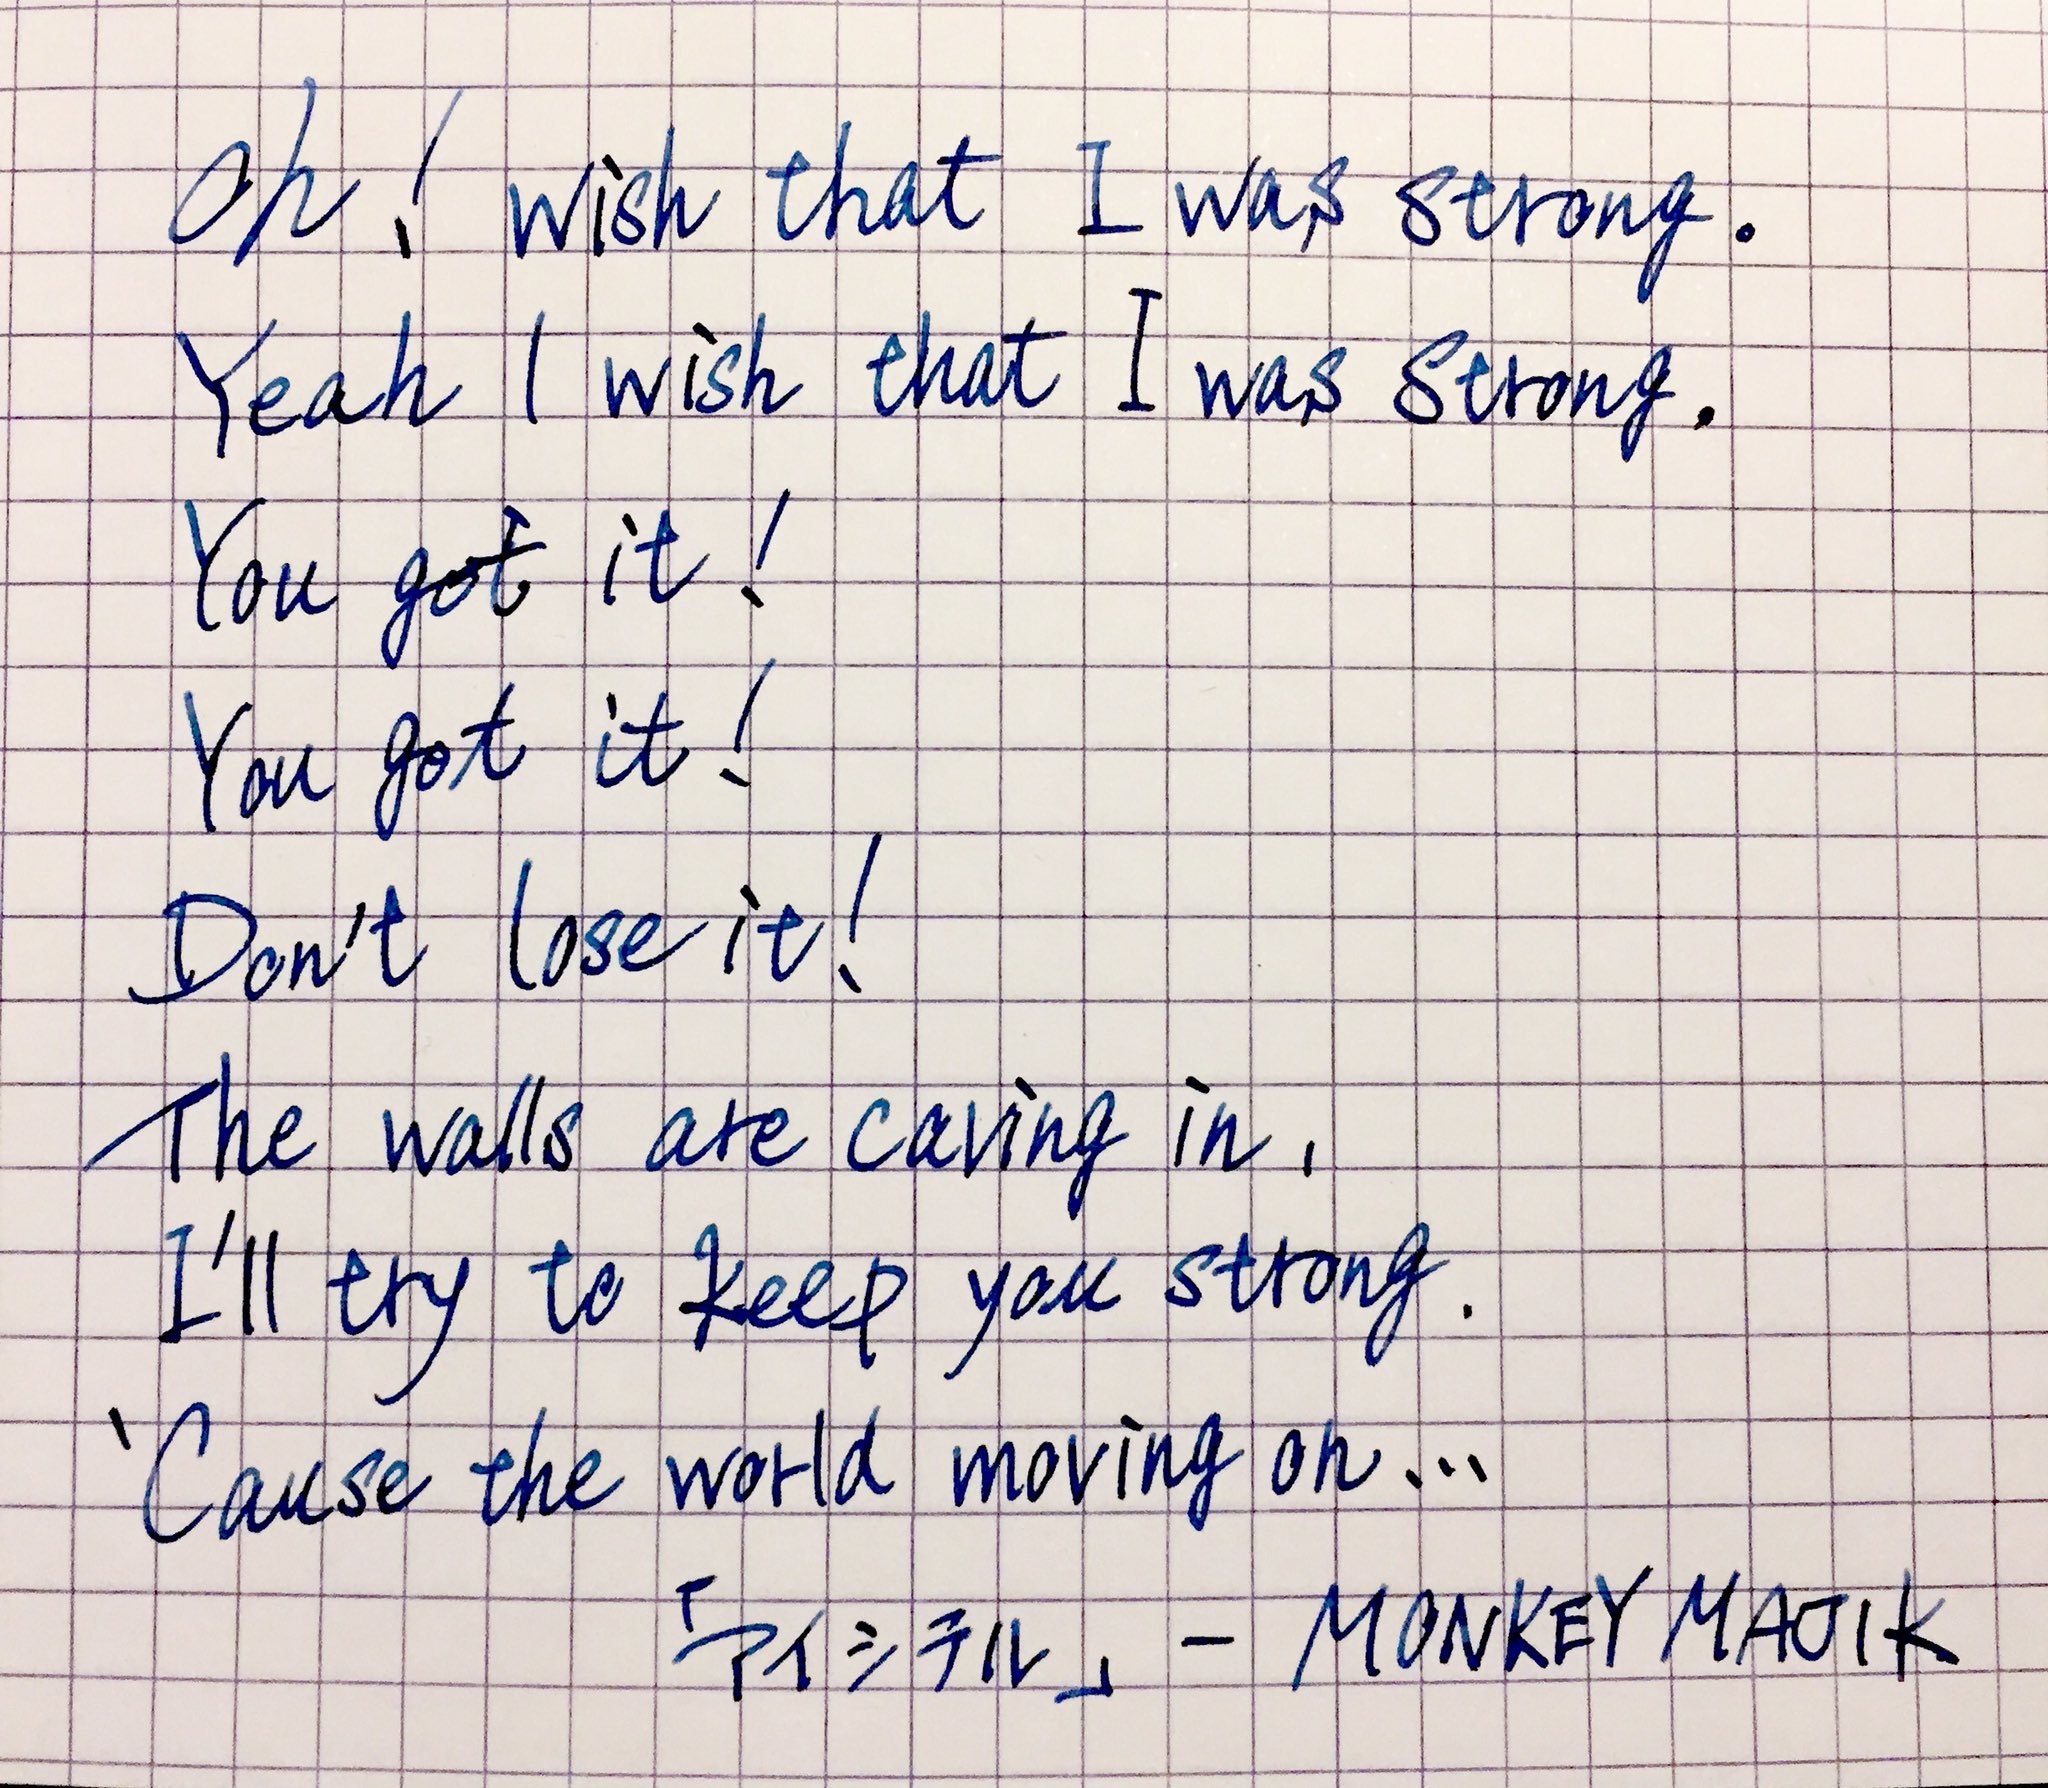 Oh! wish that I was strong.
Yeah I wish that I was strong.
You got it!
You got it!
Don't lose it!
The walls are caving in,
I'll try to keep you strong.
'Cause the world moving on...
「アイシテル」 - MONKEY MAJIK